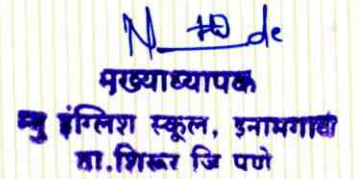 मुख्याध्यापक
न्यु इंग्लिश स्कूल, इनामगाव
ता.शिरूर जि पुणे